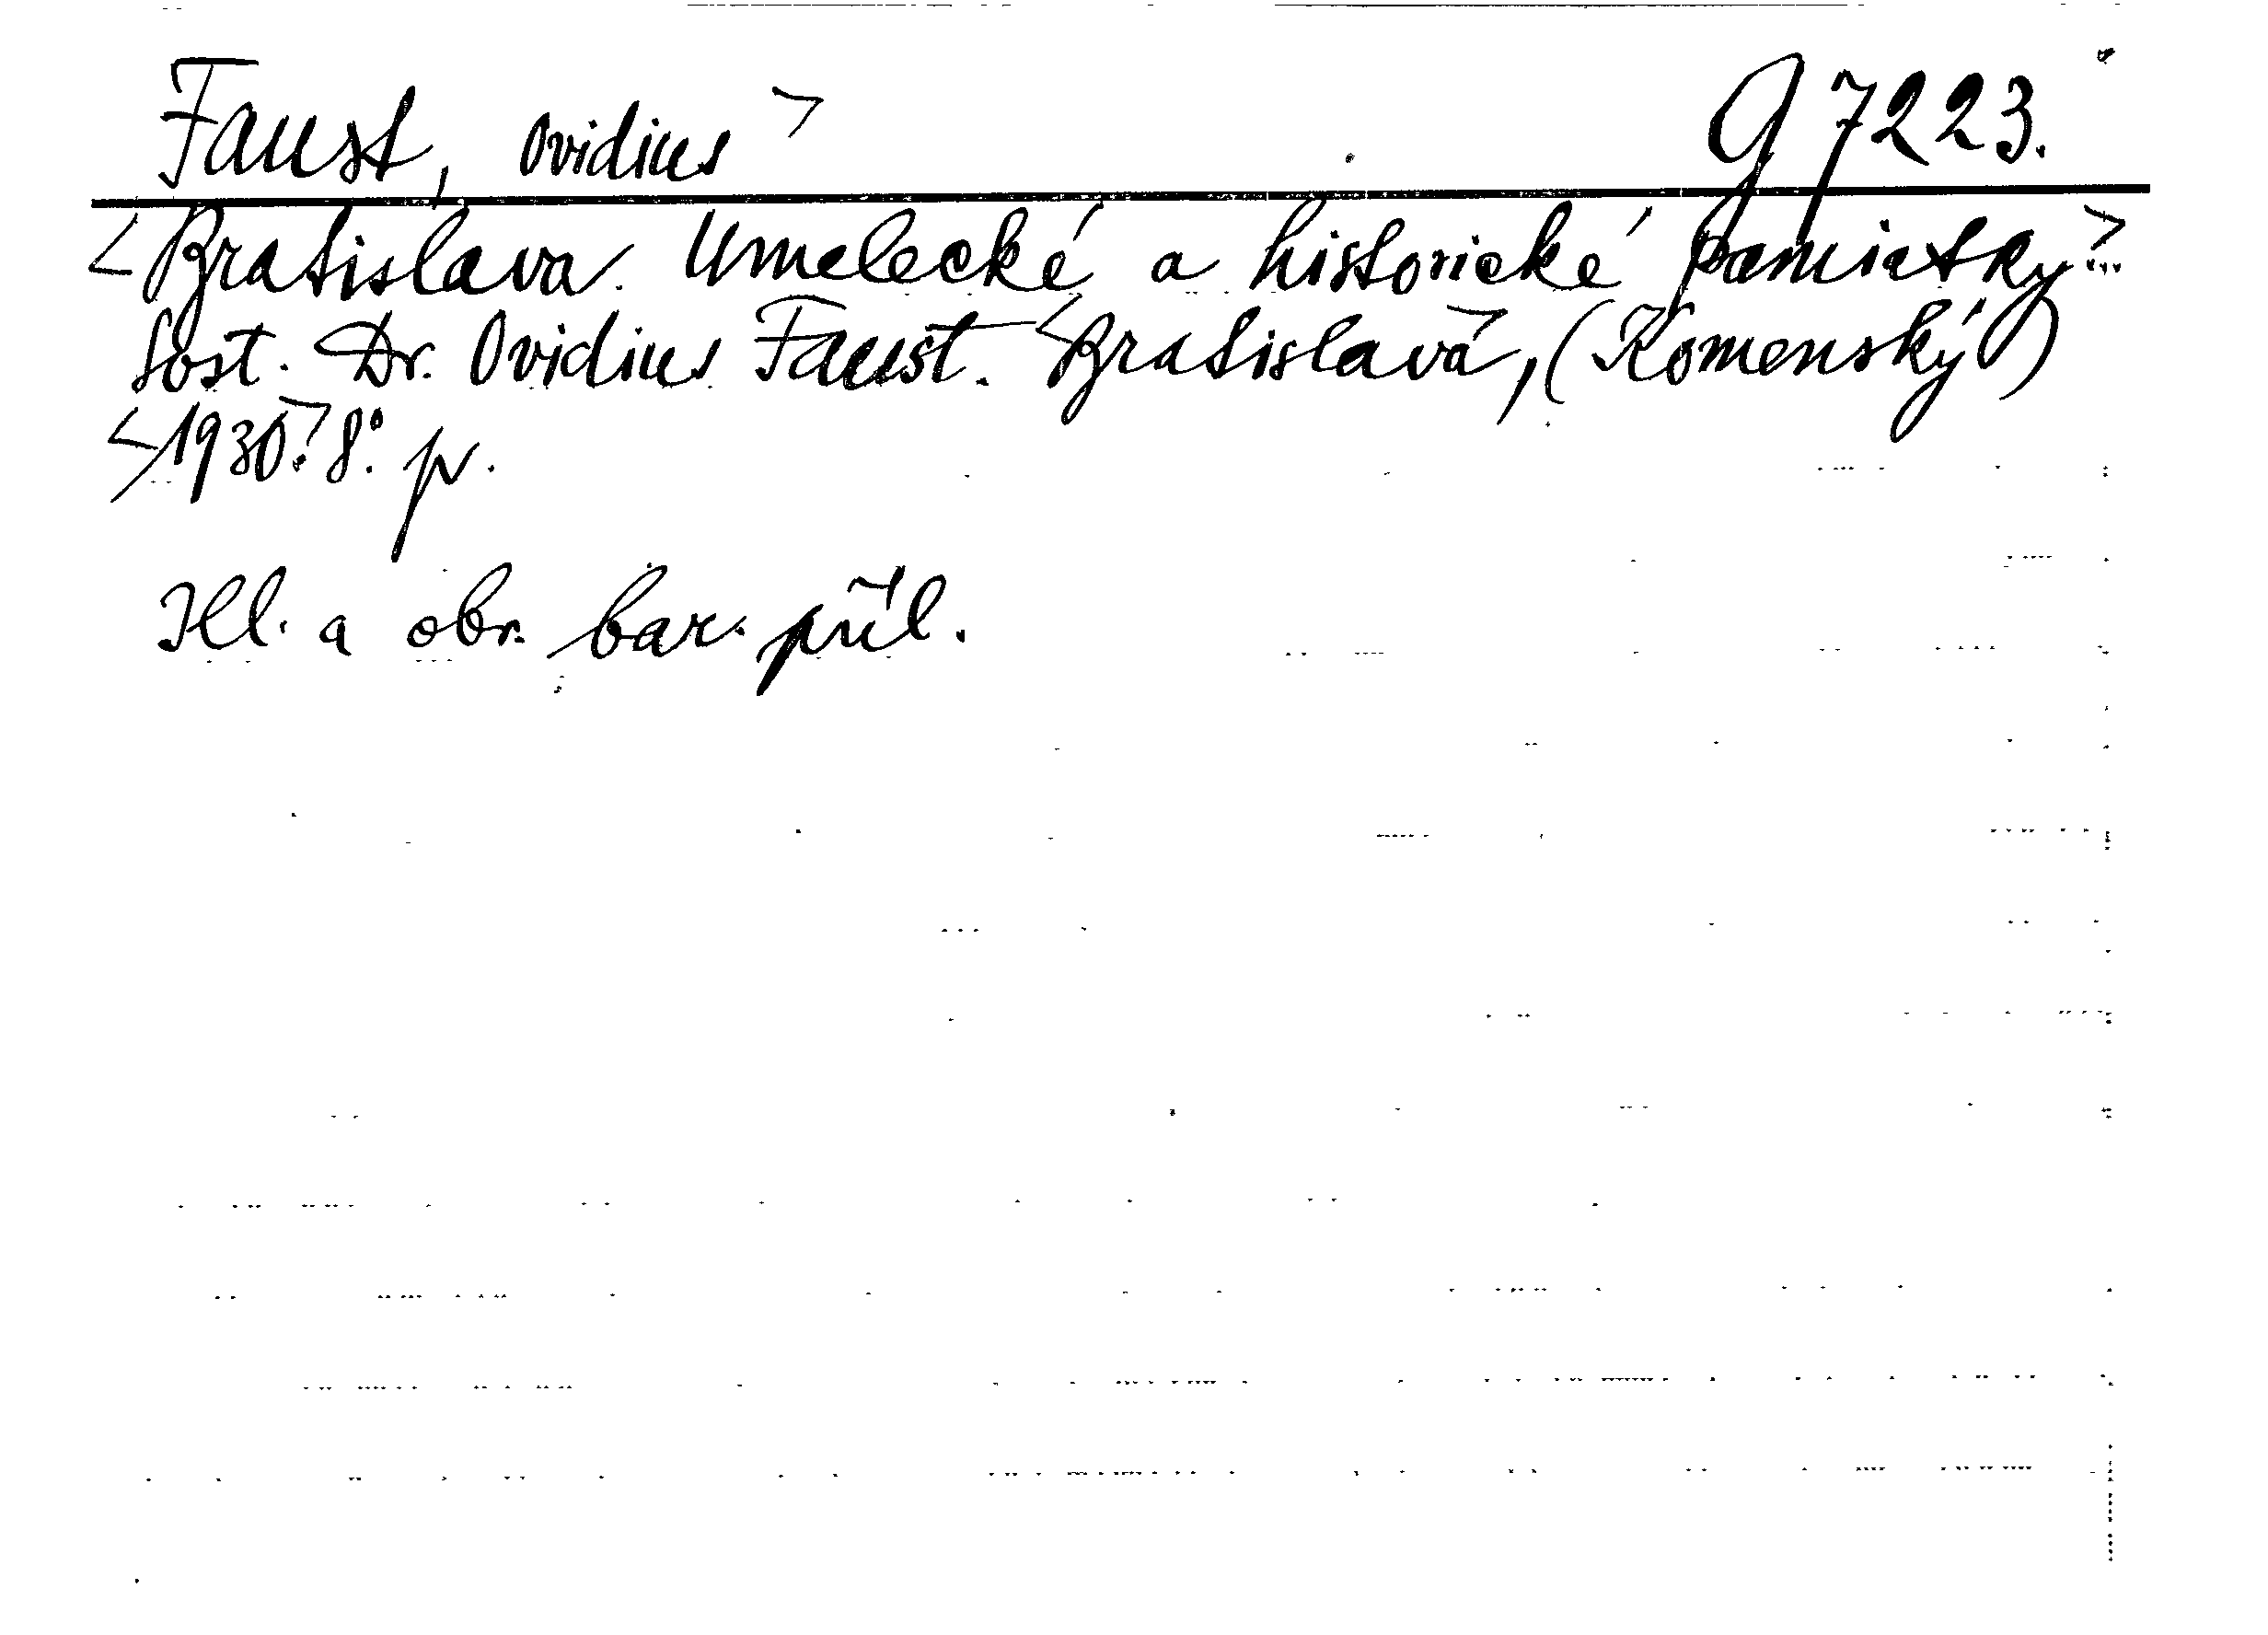 Faust, Ovidius> G 7223.
<Bratislava. Umelecké a historické pamiatky>...
Sost. Dr. Ovidius Faust. <Bratislava>, (Komenský)
<1930>. 8°. p.
Ill. a obr. bar. příl.